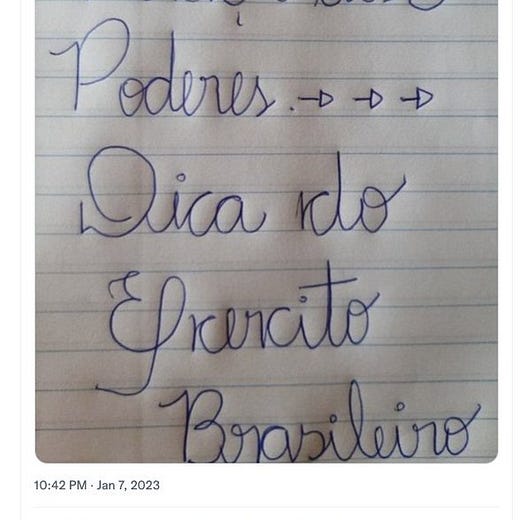 Poderes. → → →
Dica do
Exército
Brasileiro
10:42 PM · Jan 7, 2023